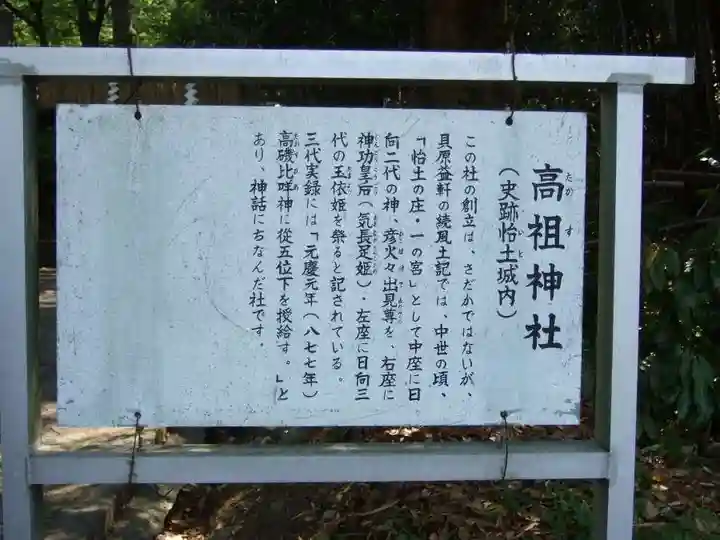 高祖神社
たかす
(史跡怡土城内)
いと
この社の創立は、さだかではないが、
貝原益軒の続風土記では、中世の頃、
「怡土の庄・一の宮」として中座に日
向二代の神、彦火々出見尊を、右座に
神功皇后(気長足姫)・左座に日向三
代の玉依姫を祭ると記されている。
三代実録には「元慶元年(八七七年)
高磯比咩神に従五位下を授給す。」と
あり、神話にちなんだ社です。